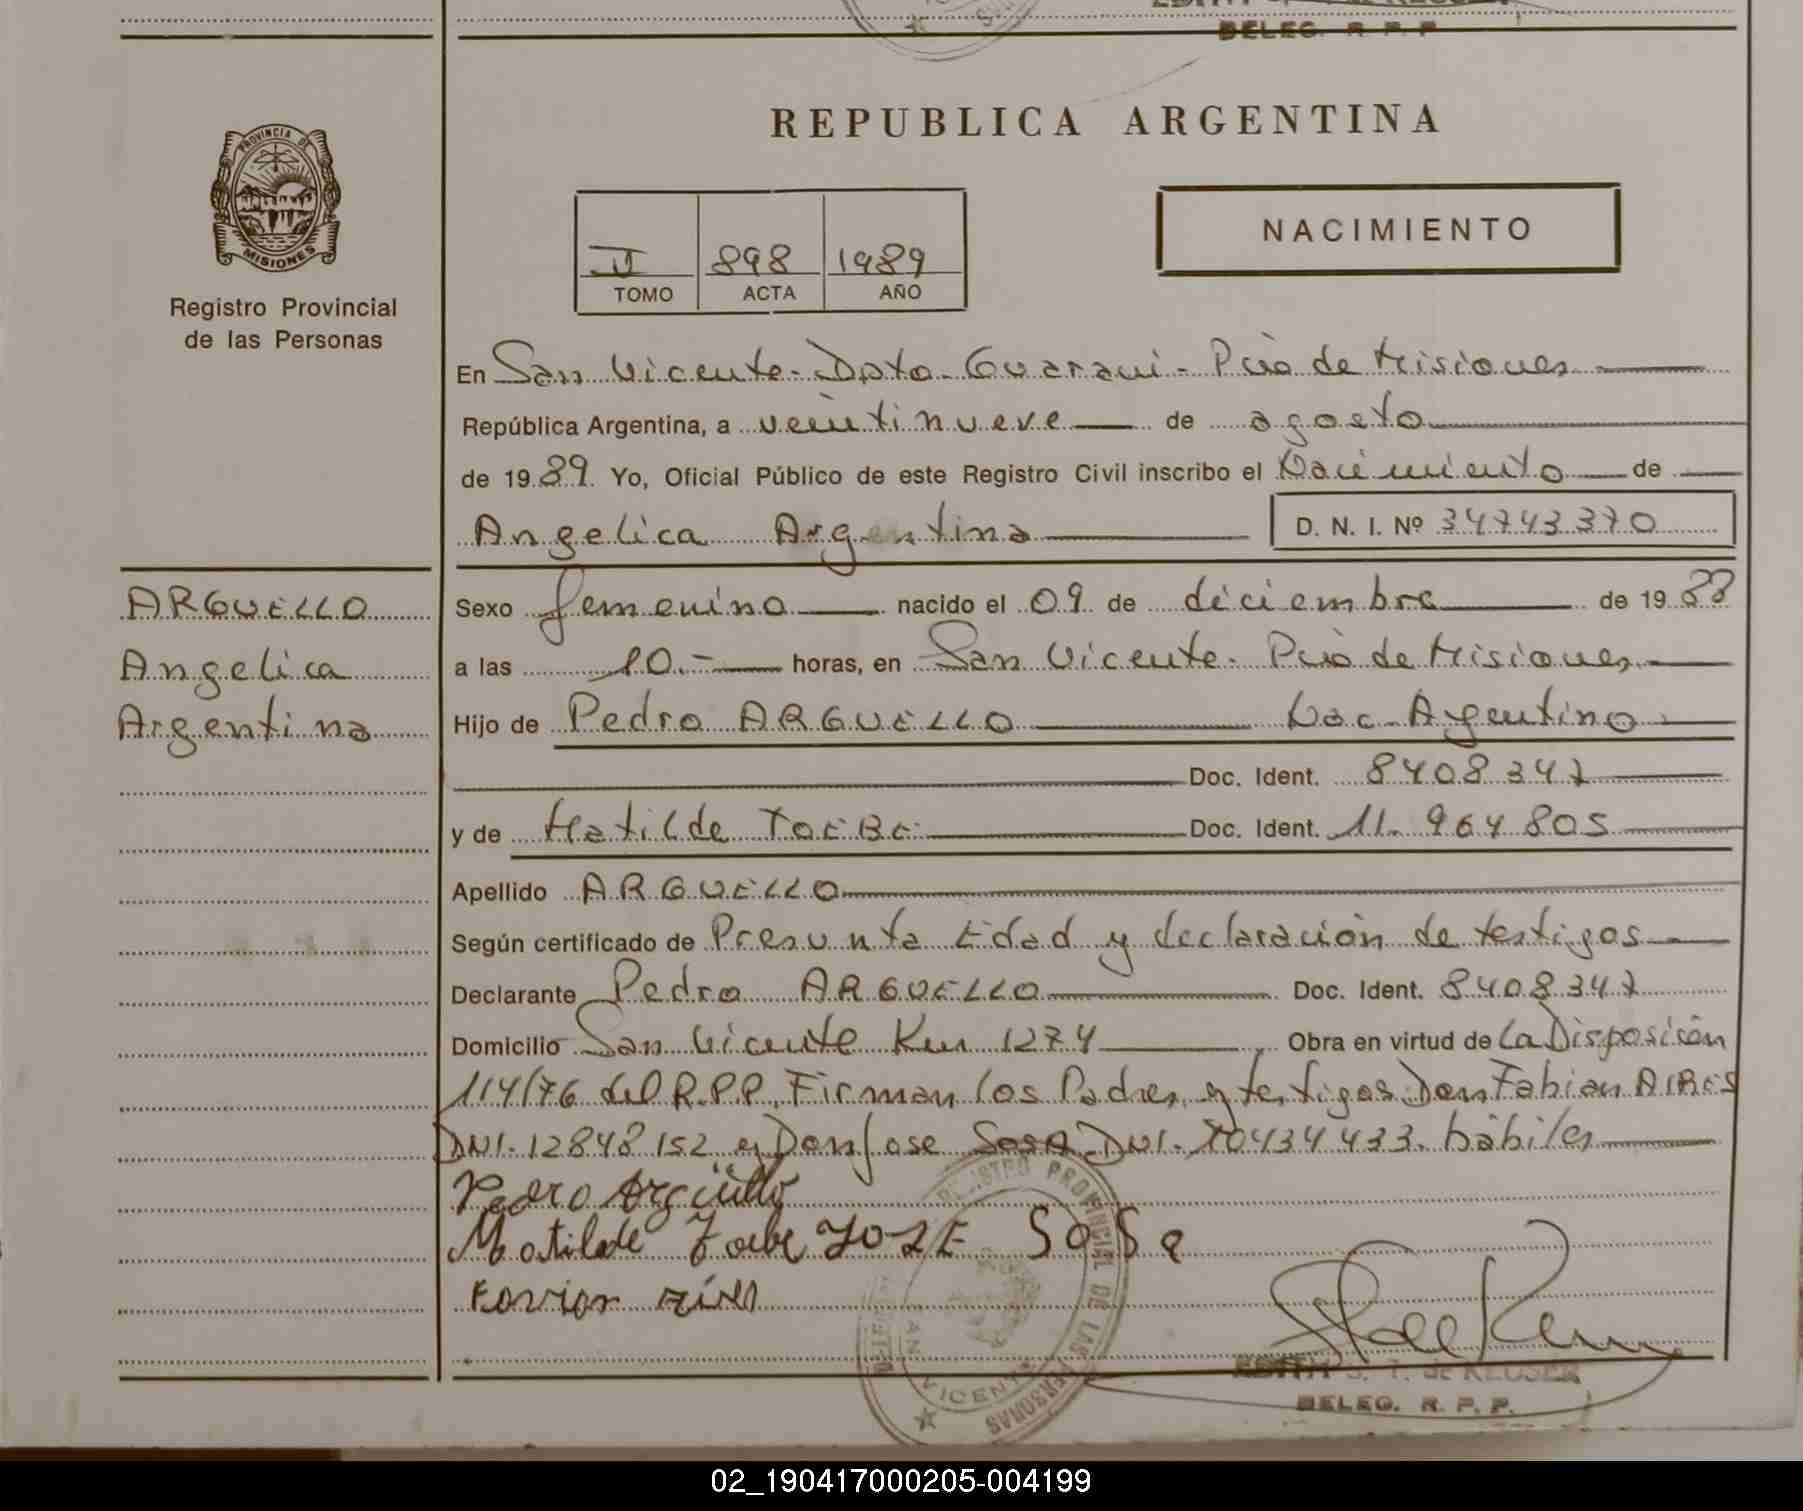 DELEG. R. P. P.
REPUBLICA ARGENTINA
PROVINCIA DE
MISIONES
Registro Provincial
de las Personas
II 898 1989
TOMO ACTA AÑO
NACIMIENTO
En San Vicente - Dpto. Guarani - Pcia de Misiones
República Argentina, a veintinueve de agosto
de 1989. Yo, Oficial Público de este Registro Civil inscribo el Nacimiento de
Angelica Argentina D. N. I. Nº 34743370
ARGUELLO
Angelica
Argentina
Sexo femenino nacido el 09 de diciembre de 1988
a las 10.- horas, en San Vicente. Pcia de Misiones
Hijo de Pedro ARGUELLO Nac. Argentino
Doc. Ident. 8408347
y de Matilde TOEBE Doc. Ident. 11.964805
Apellido ARGUELLO
Según certificado de Presunta Edad y declaración de testigos
Declarante Pedro ARGUELLO Doc. Ident. 8408347
Domicilio San Vicente Km 1274 Obra en virtud de La Disposición
114/76 del R.P.P. Firman los Padres y testigos Don Fabian AIRES
DNI. 12848152 y Don Jose SOSA DNI. 10434433. hábiles
Pedro Argüello
Matilde Toebe JOSE SOSa
REGISTRO PROVINCIAL DE LAS PERSONAS
SAN VICENTE
EDITH S. T. de KEUSER
DELEG. R. P. P.
02_190417000205-004199